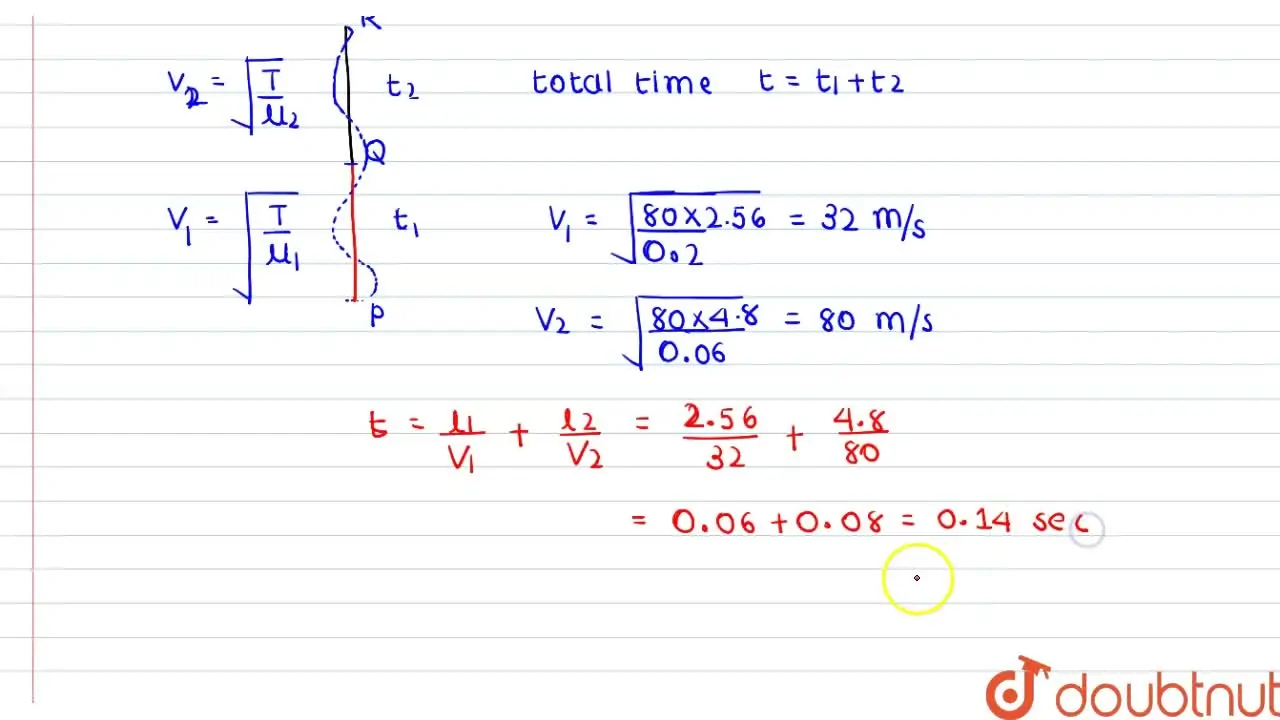 R
V2 = √(T/μ2) t2 total time t = t1 + t2
Q
V1 = √(T/μ1) t1 V1 = √(80×2.56/0.2) = 32 m/s
P
V2 = √(80×4.8/0.06) = 80 m/s
t = l1/V1 + l2/V2 = 2.56/32 + 4.8/80
= 0.06 + 0.08 = 0.14 sec
doubtnut